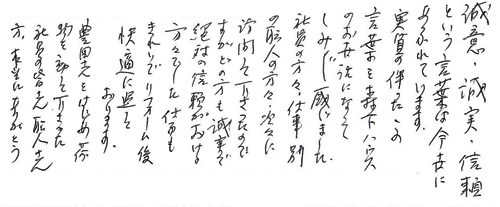 誠意・誠実・信頼
という言葉は今世に
あふれています。
実質の伴ったこの
言葉を森下ハウス
のお世話になって
しみじみ感じました。
社員の方々、仕事別
の職人の方々、次々に
訪問して下さったので
すがどの方も誠実で
絶対の信頼がおける
方々でした 仕事も
きれいでリフォーム後
快適に過して
おります。
豊岡さんをはじめ係
社員の皆さん 職人さん
方、本当にありがとう